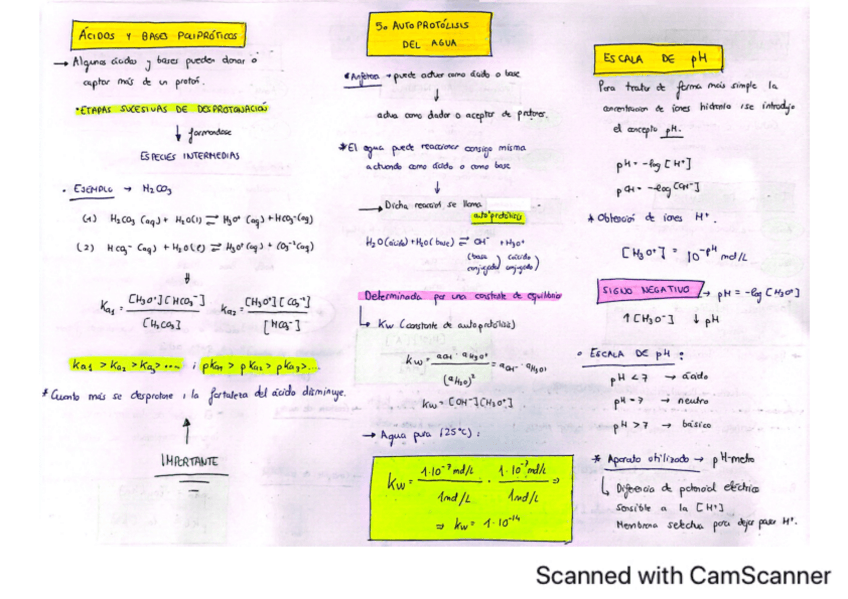 ÁCIDOS Y BASES POLIPRÓTICOS
→ Algunos ácidos y bases pueden donar o
captar más de un protón.
•ETAPAS SUCESIVAS DE DESPROTONACIÓN
↓ formandose
ESPECIES INTERMEDIAS
• EJEMPLO → H₂CO₃
(1) H₂CO₃ (aq) + H₂O(l) ⇌ H₃O⁺ (aq) + HCO₃⁻(aq)
(2) HCO₃⁻ (aq) + H₂O(l) ⇌ H₃O⁺(aq) + CO₃⁻²(aq)
↓
Ka₁ = [H₃O⁺][HCO₃⁻] / [H₂CO₃] Ka₂ = [H₃O⁺][CO₃⁻²] / [HCO₃⁻]
Ka₁ > Ka₂ > Ka₃> .... ; pKa₁ > pKa₂ > pKa₃>....
* Cuanto más se desprotone, la fortaleza del ácido disminuye.
↑
IMPORTANTE
5. AUTOPROTÓLISIS
DEL AGUA
*Anfótera → puede actuar como ácido o base
↓
actua como dador o aceptor de protones.
*El agua puede reaccionar consigo misma
actuando como ácido o como base
↓
→ Dicha reacción se llama
autoprotólisis
H₂O(ácido)+H₂O(base) ⇌ OH⁻ + H₃O⁺
(base conjugada) (ácido conjugado)
Determinada por una constante de equilibrio
↳ Kw (constante de autoprotólisis)
Kw = aOH⁻ · aH₃O⁺ / (aH₂O)² = aOH⁻ · aH₃O⁺
Kw = [OH⁻][H₃O⁺]
→ Agua pura (25°C) :
Kw = 1·10⁻⁷ mol/L / 1mol/L · 1·10⁻⁷ mol/L / 1mol/L ⇒
⇒ Kw = 1·10⁻¹⁴
ESCALA DE pH
Para tratar de forma más simple la
concentración de iones hidronio, se introdujo
el concepto pH.
pH = -log [H⁺]
pOH = -log [OH⁻]
* Obtención de iones H⁺.
[H₃O⁺] = 10⁻ᵖᴴ mol/L
SIGNO NEGATIVO → pH = -log [H₃O⁺]
↑ [H₃O⁺] ↓ pH
• ESCALA DE pH :
pH < 7 → ácido
pH = 7 → neutro
pH > 7 → básico
* Aparato utilizado → pH-metro
↳ Diferencia de potencial eléctrico
sensible a la [H⁺]
Membrana selectiva para dejar pasar H⁺.
Scanned with CamScanner